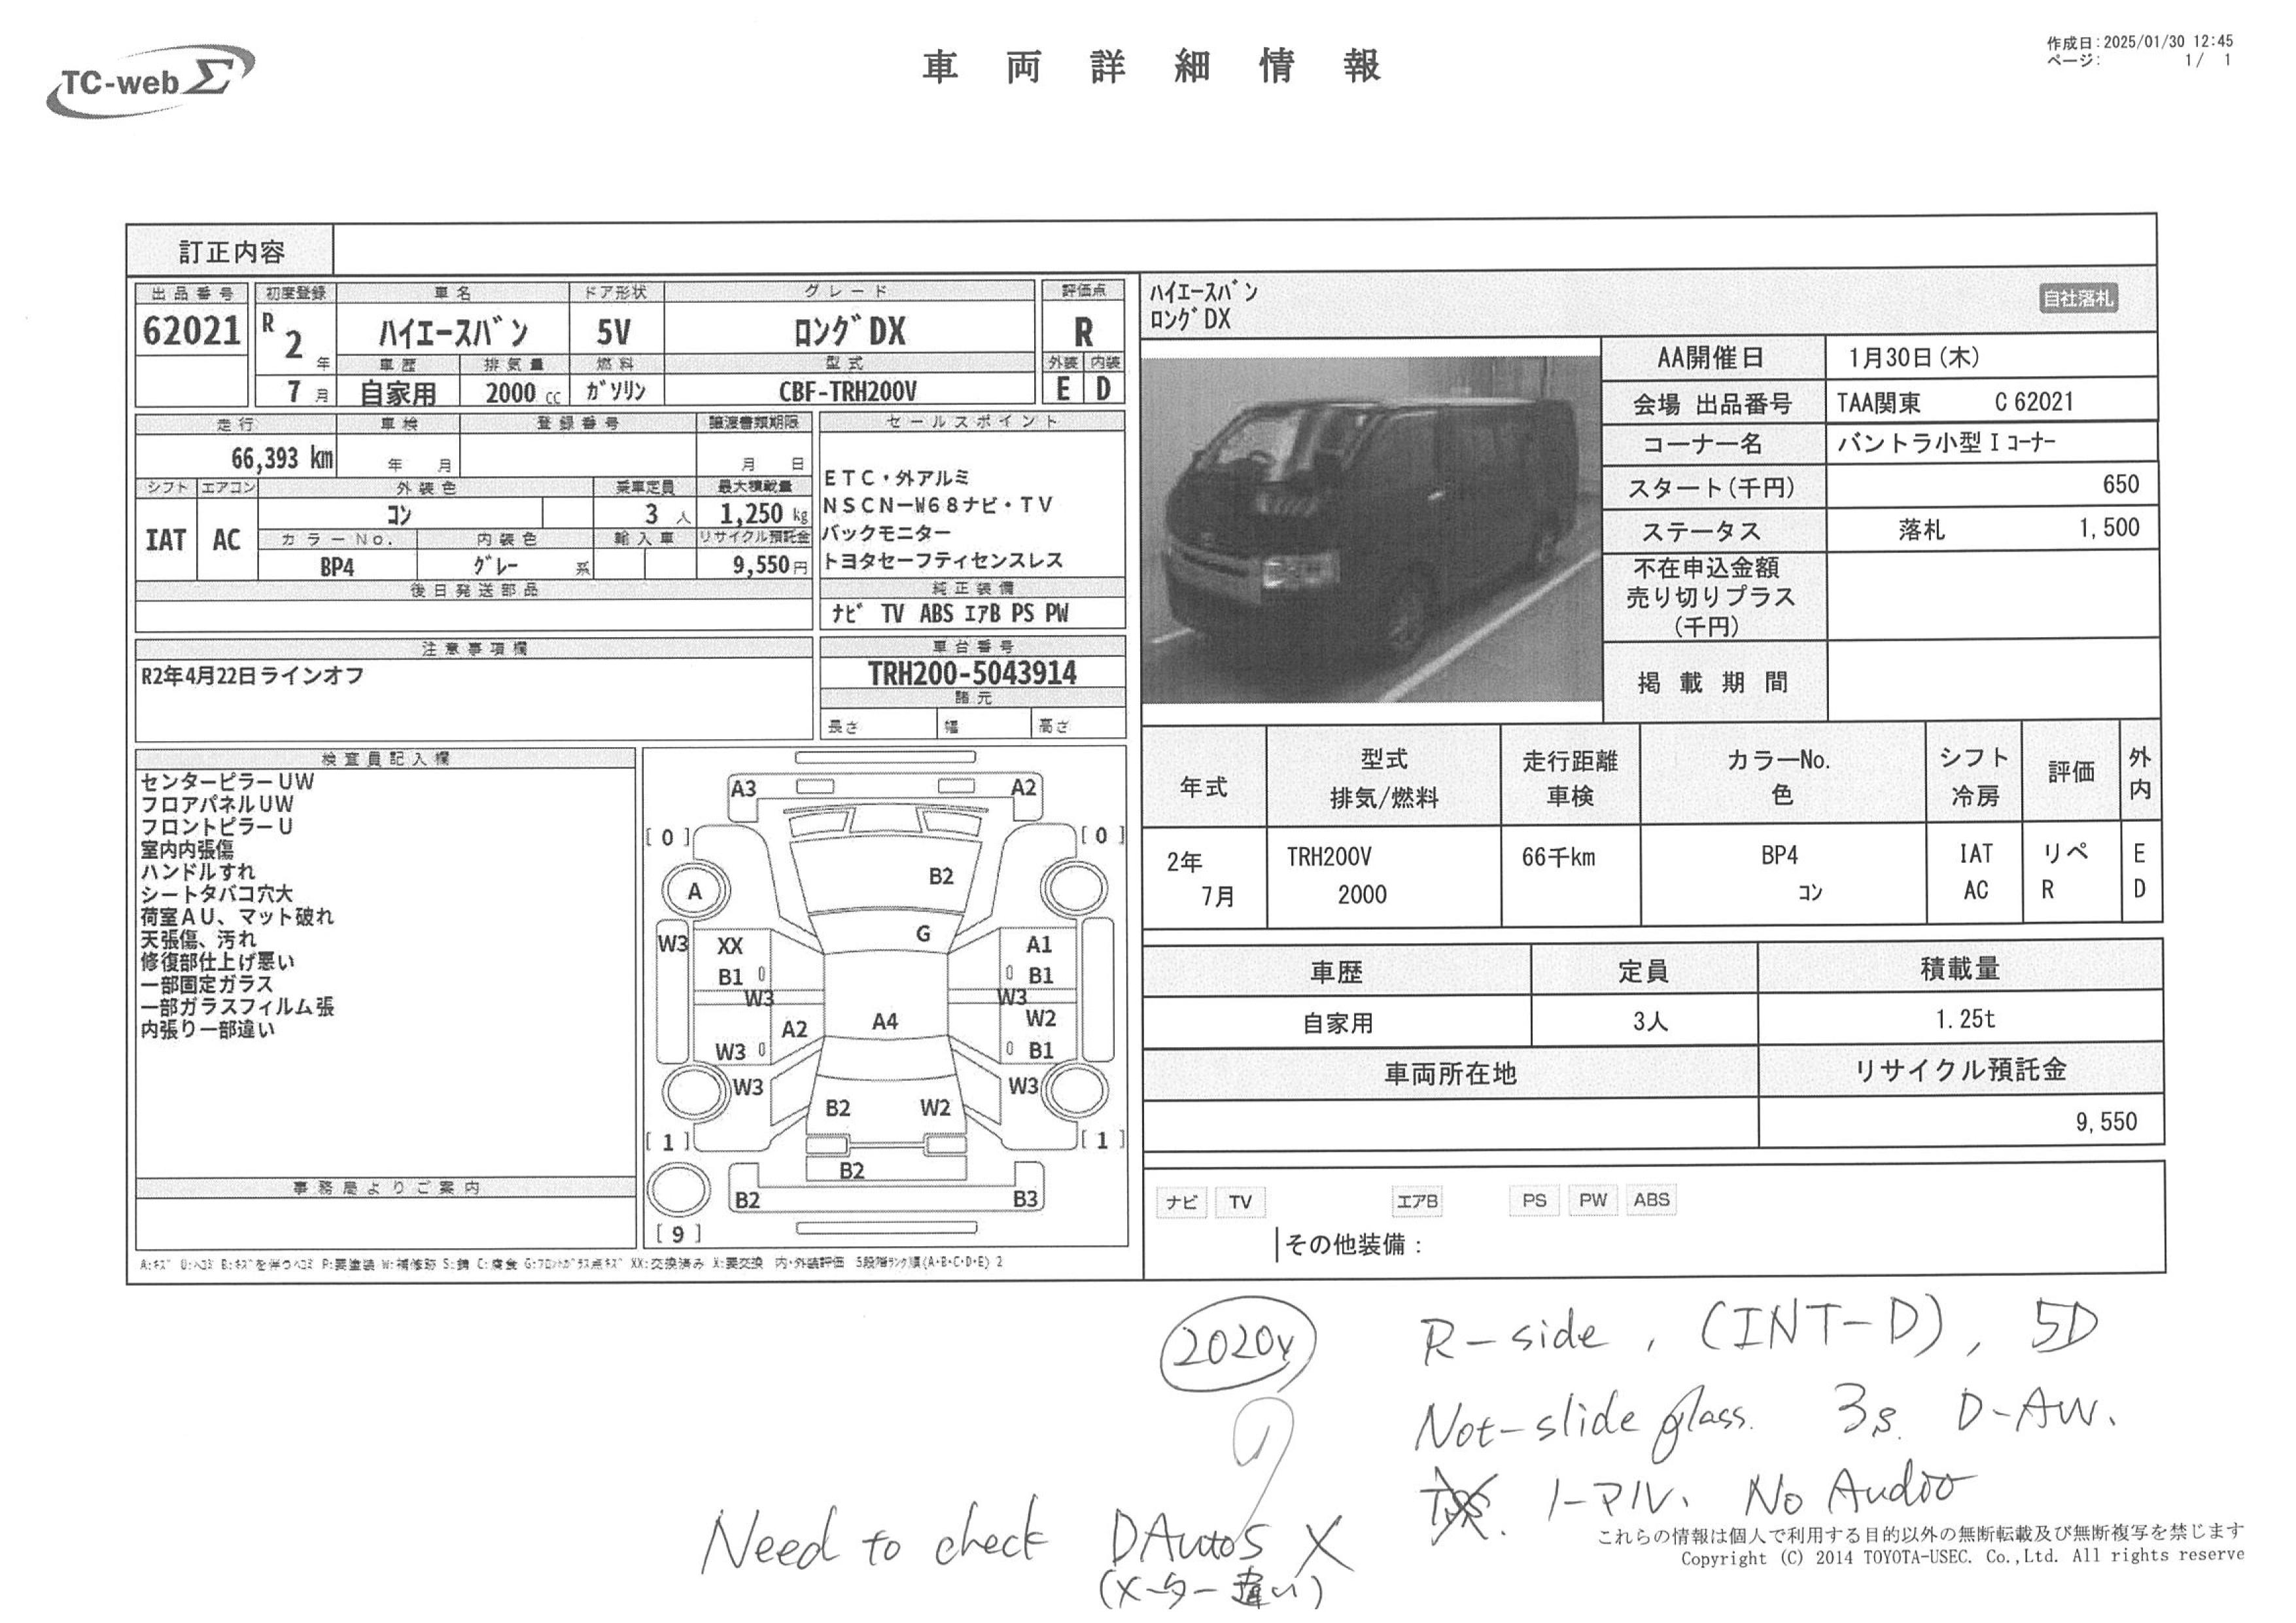 TC-webΣ
車両詳細情報
作成日:2025/01/30 12:45
ページ: 1/ 1
訂正内容
出品番号 初度登録 車名 ドア形状 グレード 評価点
62021 R 2 年 ハイエースバン 5V ロングDX R
車歴 排気量 燃料 型式 外装 内装
7 月 自家用 2000 cc ガソリン CBF-TRH200V E D
走行 車検 登録番号 譲渡書類期限 セールスポイント
66,393 km 年 月 月 日
シフト エアコン 外装色 乗車定員 最大積載量
IAT AC コン 3 人 1,250 kg
カラーNo. 内装色 輸入車 リサイクル預託金
BP4 グレー 系 9,550円
ETC・外アルミ
NSCN－W68ナビ・TV
バックモニター
トヨタセーフティセンスレス
後日発送部品
純正装備
ナビ TV ABS エアB PS PW
注意事項欄
R2年4月22日ラインオフ
車台番号
TRH200-5043914
諸元
長さ 幅 高さ
検査員記入欄
センターピラーUW
フロアパネルUW
フロントピラーU
室内内張傷
ハンドルすれ
シートタバコ穴大
荷室AU、マット破れ
天張傷、汚れ
修復部仕上げ悪い
一部固定ガラス
一部ガラスフィルム張
内張り一部違い
事務局よりご案内
A3 A2
[ 0 ] [ 0 ]
A B2
W3 XX G A1
B1 B1
W3 W3
A2 A4 W2
W3 B1
W3 W3
B2 W2
[ 1 ] [ 1 ]
B2
B2 B3
[ 9 ]
A:キズ U:ヘコミ B:キズを伴うヘコミ P:要塗装 W:補修跡 S:錆 C:腐食 G:フロントガラス点キズ XX:交換済み X:要交換 内・外装評価 5段階ランク順(A・B・C・D・E) 2
ハイエースバン
ロングDX
自社落札
AA開催日 1月30日(木)
会場 出品番号 TAA関東 C 62021
コーナー名 バントラ小型Iコーナー
スタート(千円) 650
ステータス 落札 1,500
不在申込金額
売り切りプラス
(千円)
掲載期間
年式 型式 走行距離 カラーNo. シフト 評価 外
排気/燃料 車検 色 冷房 内
2年 TRH200V 66千km BP4 IAT リペ E
7月 2000 コン AC R D
車歴 定員 積載量
自家用 3人 1.25t
車両所在地 リサイクル預託金
9,550
ナビ TV エアB PS PW ABS
その他装備：
2020y R-side, (INT-D), 5D
Not-slide glass. 3s. D-AW.
ノーマル、 No Audio
Need to check DAutos X
(メーター違い)
これらの情報は個人で利用する目的以外の無断転載及び無断複写を禁じます
Copyright (C) 2014 TOYOTA-USEC. Co.,Ltd. All rights reserve